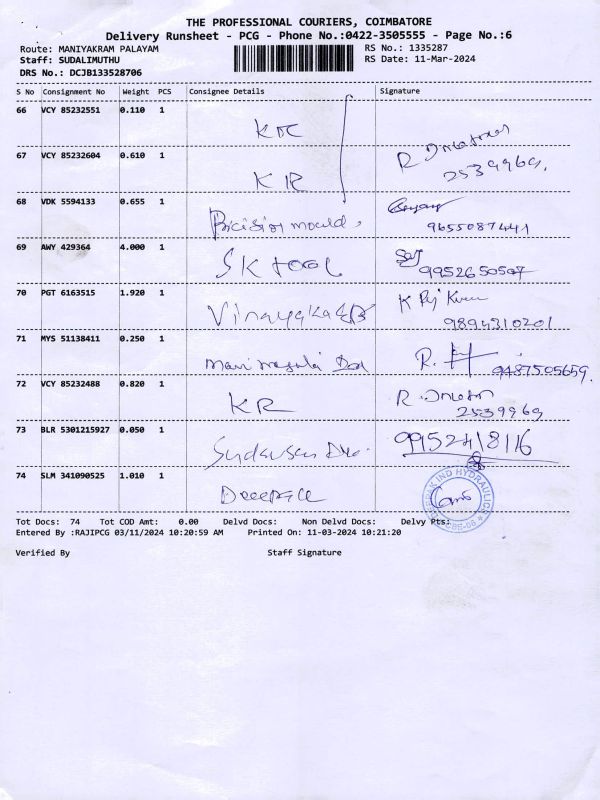 THE PROFESSIONAL COURIERS, COIMBATORE
Delivery Runsheet - PCG - Phone No.:0422-3505555 - Page No.:6
Route: MANIYAKRAM PALAYAM
RS No.: 1335287
Staff: SUDALIMUTHU
RS Date: 11-Mar-2024
DRS No.: DCJB133528706
S No Consignment No Weight PCS Consignee Details Signature
66 VCY 85232551 0.110 1
67 VCY 85232604 0.610 1 KR 2539969
68 VDK 5594133 0.655 1 9655087441
69 AWY 429364 4.000 1 SK tool 9952650507
70 PGT 6163515 1.920 1 9894310201
71 MYS 51138411 0.250 1 9487505659
72 VCY 85232488 0.820 1 KR 2539969
73 BLR 5301215927 0.050 1 9952418116
74 SLM 341090525 1.010 1
Tot Docs: 74 Tot COD Amt: 0.00 Delvd Docs: Non Delvd Docs: Delvy Pts:
Entered By :RAJIPCG 03/11/2024 10:20:59 AM Printed On: 11-03-2024 10:21:20
Verified By Staff Signature